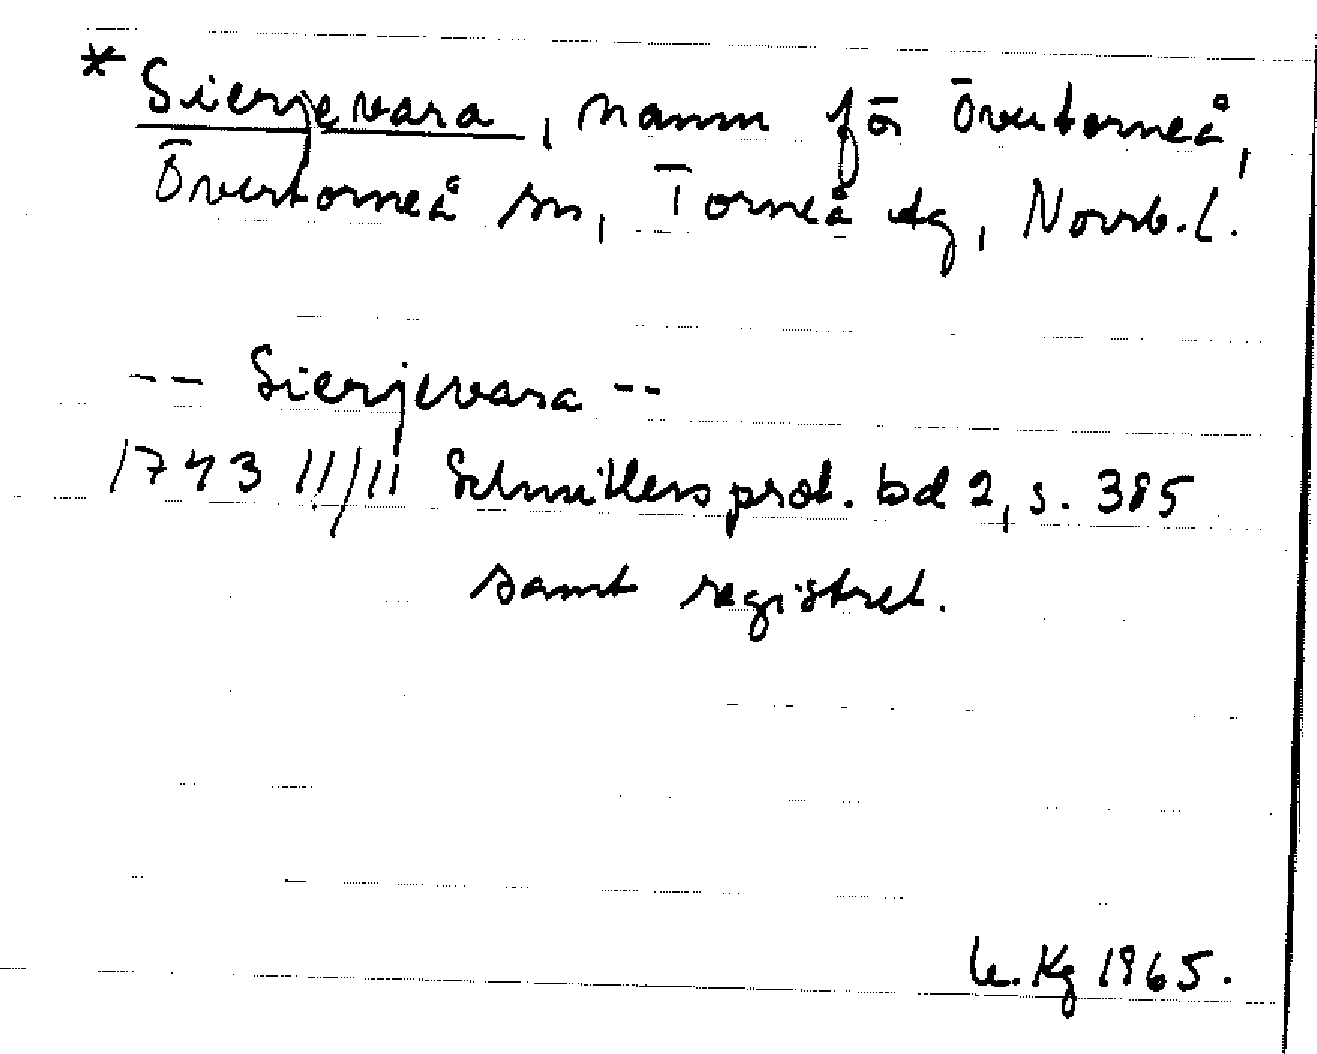 * Sierjevara, namn för Övertorneå,
Övertorneå sn, Torneå dg, Norrb. l.
-- Sierjevara --
1743 11/11 Schnitlers prot. bd 2, s. 385
samt registret.
Kg 1965.